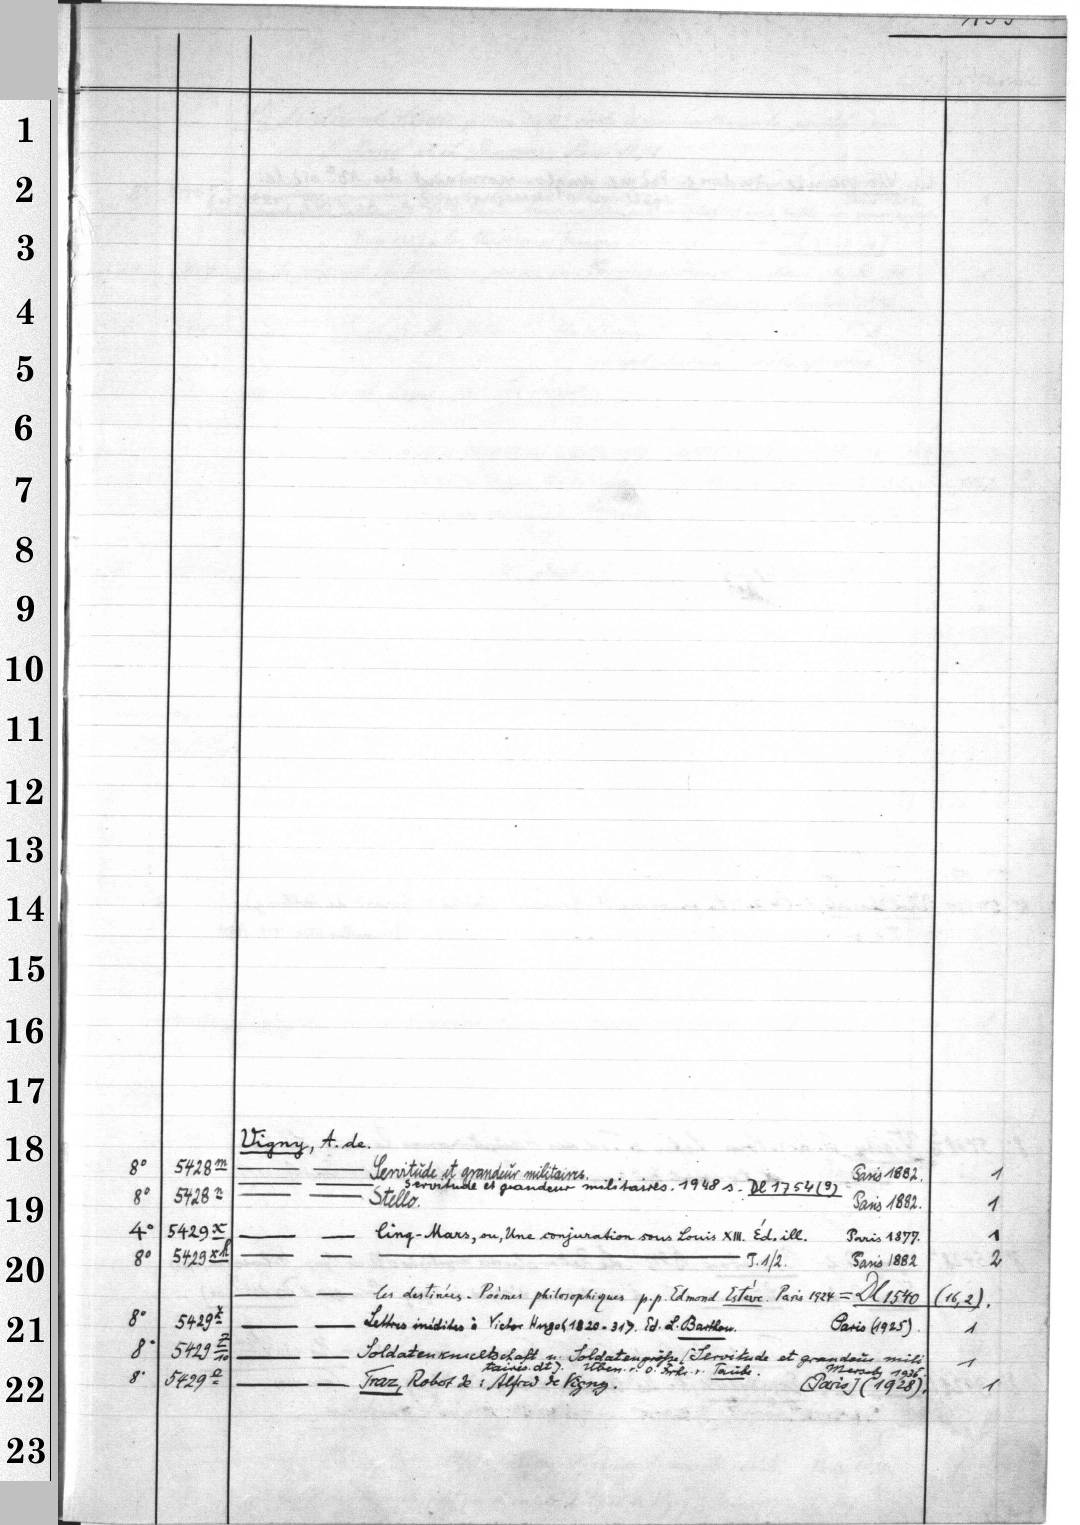 1
2
3
4
5
6
7
8
9
10
11
12
13
14
15
16
17
18
19
20
21
22
23
Vigny, A. de.
8° 5428 m Servitude et grandeur militaires. Paris 1882. 1
Servitude et grandeur militaires. 1948 s. Dl 1754 (9)
8° 5428 n Stello. Paris 1882. 1
4° 5429 x Cinq-Mars, ou, Une conjuration sous Louis XIII. Éd. ill. Paris 1877. 1
8° 5429 T. 1/2. Paris 1882 2
Les destinées. Poèmes philosophiques p.p. Edmond Estève. Paris 1924 = Dl 1540 (16,2).
8° 5429 Lettres inédites à Victor Hugo (1820-31). Ed. L. Barthou. Paris (1925). 1
8° 5429 Soldatenknechtschaft u. Soldatengröße (Servitude et grandeur mili
taires. dt). v. Taube. 1936. 1
8° 5429 Traz, Robert de: Alfred de Vigny. (Paris] (1928). 1